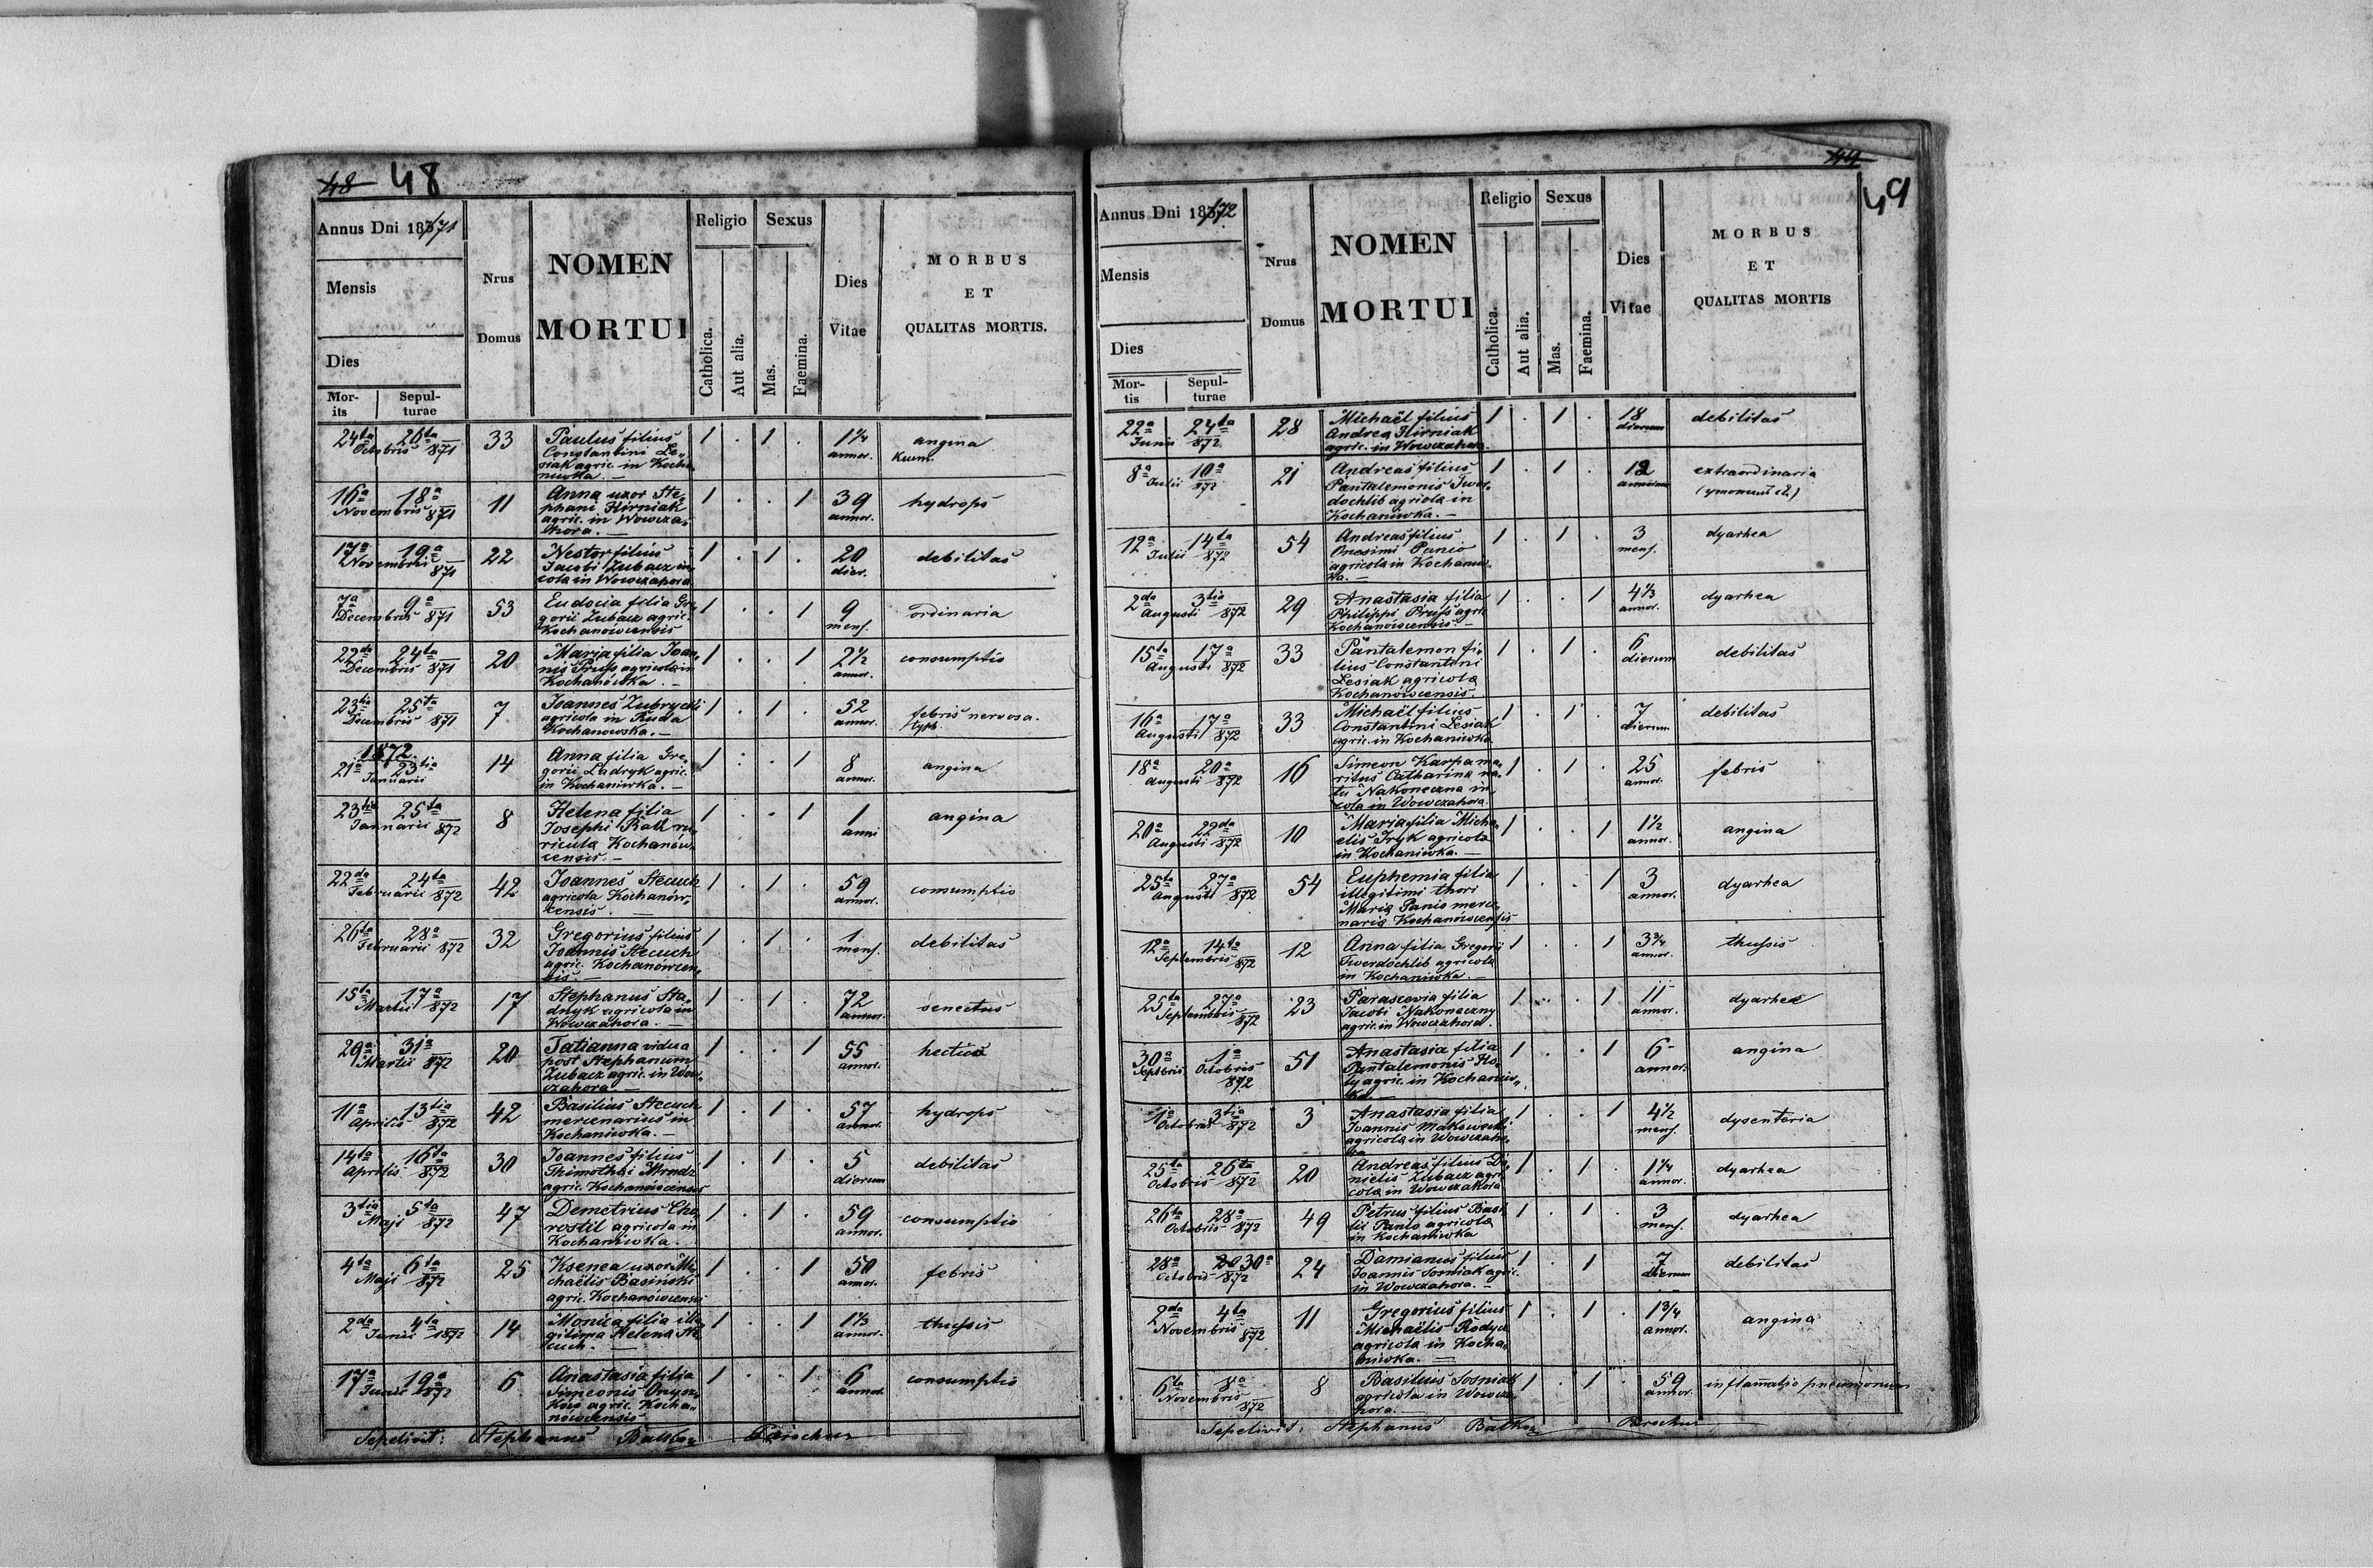 48 48
Annus Dni 1871
Mensis
Dies
Mor-
its
Sepul-
turae
Nrus
Domus
NOMEN
MORTUI
Religio
Catholica.
Aut alia.
Sexus
Mas.
Faemina.
Dies
Vitae
MORBUS
ET
QUALITAS MORTIS.
24ta 26ta 33 Paulus filius 1 . 1 . 1¼ angina
Octobris 871 Constantini Le„ annor.
siak agric. in Kocha„
niwka. —
16a 18a 11 Anna uxor Ste„ 1 . . 1 39 hydrops
Novembris 871 phani Hirniak annor.
agric. in Wowcza„
hora. —
17a 19a 22 Nestor filius 1 . 1 . 20 debilitas
Novembris 871 Jacobi Zubacz in„ dier.
cola in Wowczahora
7a 9a 53 Eudocia filia Gre„ 1 . . 1 9 ordinaria
Decembris 871 gorii Zubacz agric. mens.
Kochanówcensis
22da 24ta 20 Maria filia Joan„ 1 . . 1 2½ consumptio
Decembris 871 nis Pruss agricola in annor.
Kochanówka. —
23tia 25ta 7 Joannes Zubrycki 1 . 1 . 52 febris nervosa.
Decembris 871 agricola in Ruda annor. typh.
Kochanowska. —
1872
21a 23tia 14 Anna filia Gre„ 1 . . 1 8 angina
Januarii gorii Ladryk agric. annor.
in Kochaniwka. —
23tia 25ta 8 Helena filia 1 . . 1 1 angina
Januarii 872 Josephi anni
Kochanów„
censis. —
22da 24ta 42 Joannes Stecuch 1 . 1 . 59 consumptio
Februarii 872 agricola Kochanów„ annor.
censis. —
26ta 28a 32 Gregorius filius 1 . 1 . 1 debilitas
Februarii 872 Joannis Stecuch mens.
agric. Kochanówcen„
sis. —
15ta 17a 17 Stephanus Sta„ 1 . 1 . 72 senectus
Martii 872 dnyk agricola in annor.
Wowczahora. —
29a 31a 20 Tatianna vidua 1 . . 1 55 hectica
Martii 872 post Stephanum annor.
Zubacz agric. in Wow„
czahora —
11a 13tia 42 Basilius Stecuch 1 . 1 . 57 hydrops
Aprilis 872 mercenarius in annor.
Kochaniwka. —
14ta 16ta 30 Joannes filius 1 . 1 . 5 debilitas
Aprilis 872 Thimothei dierum
agric. Kochanówcensis
3tia 5ta 47 Demetrius Cho„ 1 . 1 . 59 consumptio
Maji 872 rostil agricola in annor.
Kochaniwka.
4ta 6ta 25 Ksenea uxor Mi„ 1 . . 1 50 febris
Maji 872 chaëlis Basinski annor.
agric. Kochanówcensis
2da 4ta 14 Monica filia ille„ 1 . . 1 1⅓ thussis
Junii 1872 gitima Helena Ste„ annor.
cuch. —
17a 19a 6 Anastasia filia 1 . . 1 6 consumptio
Junii 1872 Simeonis Onysz„ annor.
Kocha„
nówcensis
Sepelivit: Stephanus Parochus
49
49
Annus Dni 1872
Mensis
Dies
Mor-
tis
Sepul-
turae
Nrus
Domus
NOMEN
MORTUI
Religio
Catholica.
Aut alia.
Sexus
Mas.
Faemina.
Dies
Vitae
MORBUS
ET
QUALITAS MORTIS
22a 24ta 28 Michaël filius 1 . 1 . 18 debilitas
Junii 872 Andrea Hirniak dierum
agric. in Wowczahora.
8a 10a 21 Andreas filius 1 . 1 . 12 extraordinaria
Julii 872 Pantalemonis Twer„
dochlib agricola in
Kochaniwka. —
12a 14ta 54 Andreas filius 1 . 1 . 3 dyarhea
Julii 872 Onesimi Panio mens.
agricola in Kochaniw„
ka. —
2da 3tia 29 Anastasia filia 1 . . 1 4⅓ dyarhea
Augusti 872 Philippi Pruss agric. annor.
Kochanówcensis. —
15ta 17a 33 Pantalemon fi„ 1 . 1 . 6 debilitas
Augusti 872 lius Constantini dierum
Lesiak agricola
Kochanówcensis.
16a 17a 33 Michaël filius 1 . 1 . 7 debilitas
Augusti 872 Constantini Lesiak dierum
agric. in Kochaniwka
18a 20a 16 Simeon Karpa ma„ 1 . 1 . 25 febris
Augusti 872 ritus Catharina na„ annor.
ta Nakoneczna in„
cola in Wowczahora.
20a 22da 10 Maria filia Micha„ 1 . . 1 1½ angina
Augusti 872 elis Iryk agricola annor.
in Kochaniwka. —
25ta 27a 54 Euphemia filia 1 . . 1 3 dyarhea
Augusti 872 illegitimi thori annor.
Maria Panio merce„
naria Kochanówcensis
12a 14ta 12 Anna filia Gregorii 1 . . 1 3¾ thussis
Septembris 872 Twerdochlib agricola annor.
in Kochaniwka. —
25ta 27a 23 Parascevia filia 1 . . 1 11 dyarhea
Septembris 872 Jacobi Nakoneczny annor.
agric. in Wowczahora.
30a 1a 51 Anastasia filia 1 . . 1 6 angina
Septbris Octobris 872 Pantalemonis Ho„ annor.
ly agric. in Kochaniw„
ka. —
1a 3tia 3 Anastasia filia 1 . . 1 4½ dysenteria
Octobris 872 Joannis Makowecki mens.
agricola in Wowczaho„
ra
25ta 26ta 20 Andreas filius Da„ 1 . 1 . 1¼ dyarhea
Octobris 872 nielis Zubacz agri„ annor.
cola in Wowczahora
26ta 28a 49 Petrus filius Basi„ 1 . 1 . 3 dyarhea
Octobris 872 lii Panio agricola mens.
in Kochaniwka
28a 30a 24 Damianus filius 1 . 1 7 debilitas
Octobris 872 Joannis Sosniak agric. dierum
in Wowczahora. —
2da 4ta 11 Gregorius filius 1 . 1 . 1¾ angina
Novembris 872 Michaëlis annor.
agricola in Kocha„
niwka. —
6ta 8a 8 Basilius Sosniak 1 . 1 . 59 inflamatio pneumonum
Novembris 872 agricola in Wowcza„ annor.
hora. —
Sepelivit: Stephanus Parochus